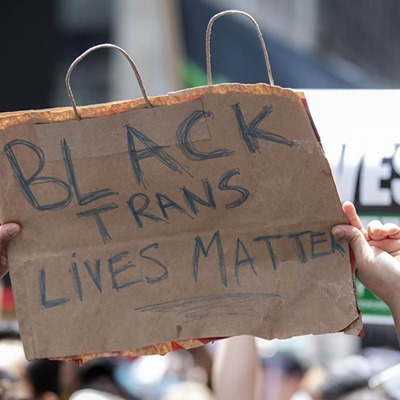 BLACK
TRANS
LIVES MATTER